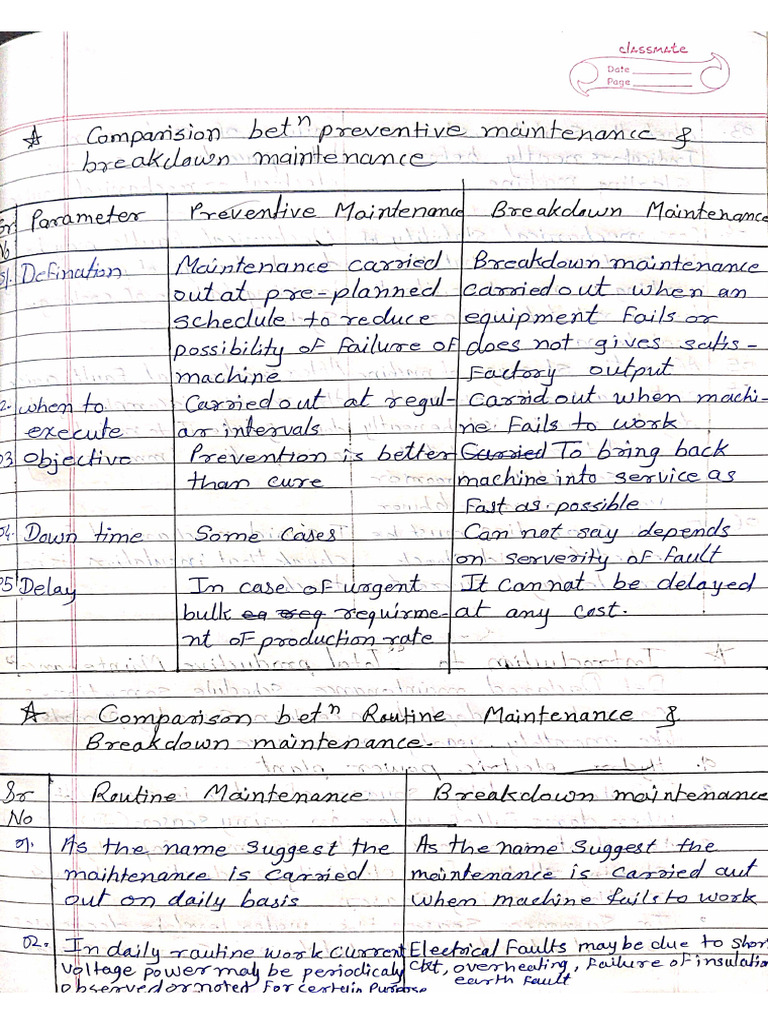 classmate
Date
Page
☆ Comparision betⁿ preventive maintenance &
breakdown maintenance
Sr No | Parameter | Preventive Maintenance | Breakdown Maintenance
01. Defination | Maintenance carried | Breakdown maintenance
out at pre-planned | carried out when an
schedule to reduce | equipment Fails or
possibility of failure of | does not gives satis-
machine | Factory output
2. when to | Carried out at regul- | Carrid out when machi-
execute | ar intervals | ne Fails to work
03 Objective | Prevention is better | Carried To bring back
than cure | machine into service as
Fast as possible
04. Down time | Some cases | Can not say depends
on serverity of fault
05 Delay | In case of urgent | It cannot be delayed
bulk requirme- | at any cost.
nt of production rate
☆ Comparison betⁿ Routine Maintenance &
Breakdown maintenance.
Sr No | Routine Maintenance | Breakdown maintenance
01. | As the name suggest the | As the name suggest the
maihtenance is carried | maintenance is carried out
out on daily basis | when machine fails to work
02. | In daily routine work current | Electrical Faults may be due to short
voltage power may be periodicaly | ckt, overheating, Failure of insulation
observed or noted For certain Purpose | earth Fault